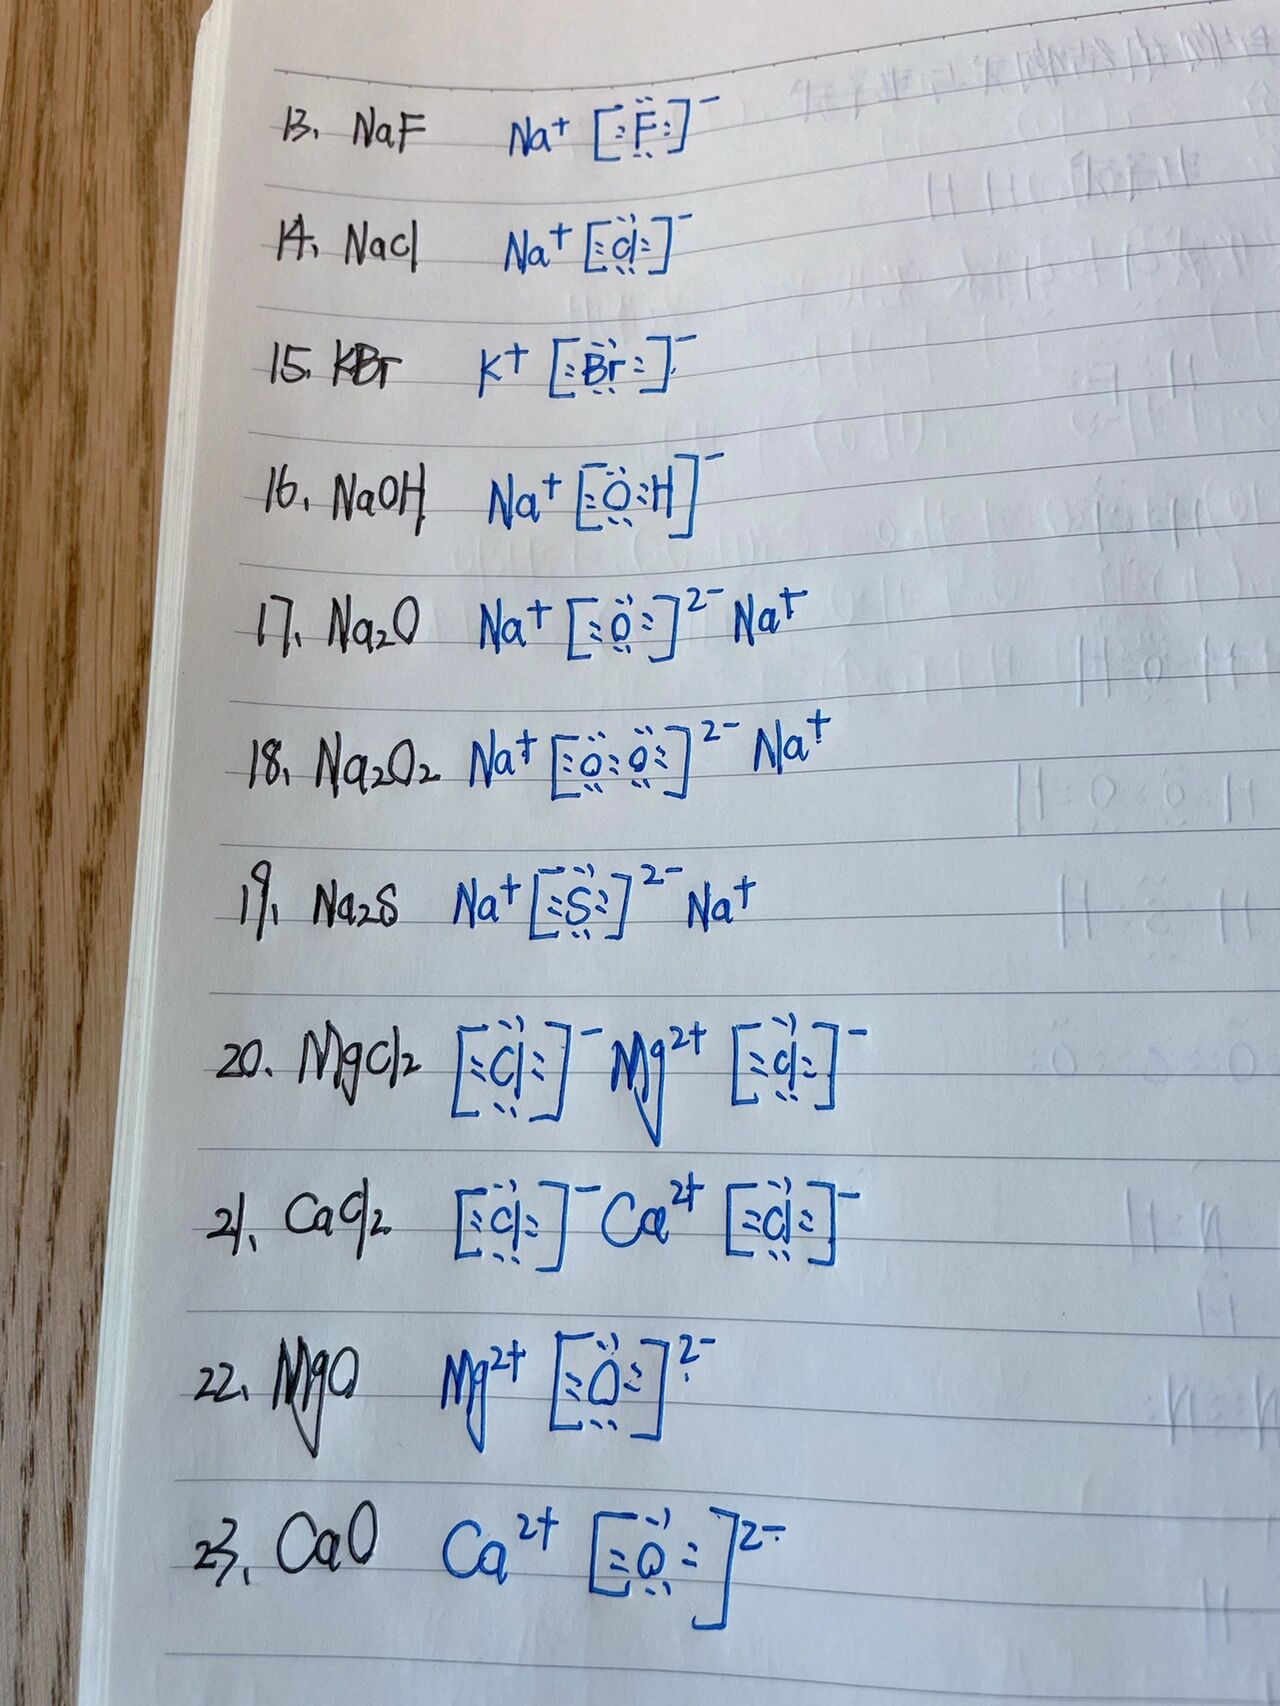 13. NaF Na⁺ [:F̤̈:]⁻
14. NaCl Na⁺ [:C̤̈l:]⁻
15. KBr K⁺ [:B̤̈r:]⁻
16. NaOH Na⁺ [:Ö̤:H]⁻
17. Na₂O Na⁺ [:Ö̤:]²⁻ Na⁺
18. Na₂O₂ Na⁺ [:Ö̤:Ö̤:]²⁻ Na⁺
19. Na₂S Na⁺ [:S̤̈:]²⁻ Na⁺
20. MgCl₂ [:C̤̈l:]⁻ Mg²⁺ [:C̤̈l:]⁻
21. CaCl₂ [:C̤̈l:]⁻ Ca²⁺ [:C̤̈l:]⁻
22. MgO Mg²⁺ [:Ö̤:]²⁻
23. CaO Ca²⁺ [:Ö̤:]²⁻